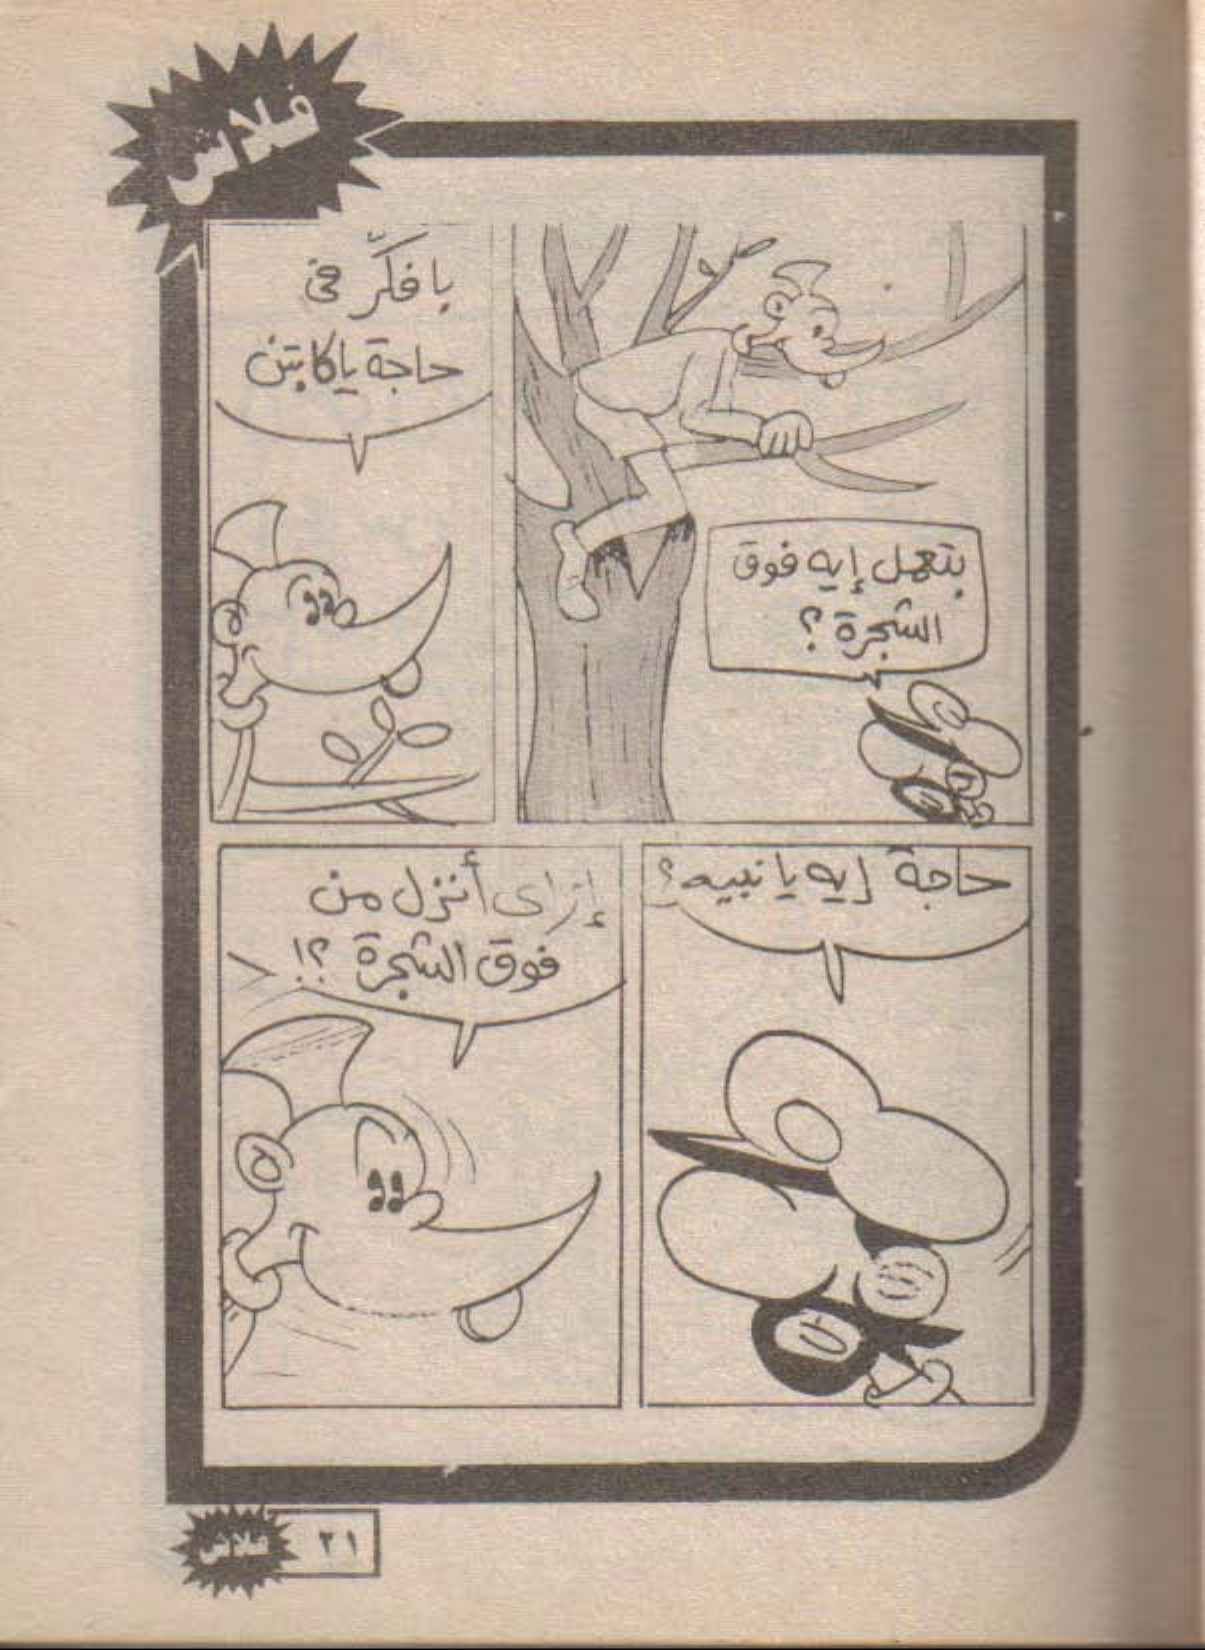 فلاش
بتعمل إيه فوق
الشجرة ؟
بافكَّر فى
حاجة ياكابتن
حاجة إيه يا نبيه ؟
إزاى أنزل من
فوق الشجرة ؟!
فلاش ٢١